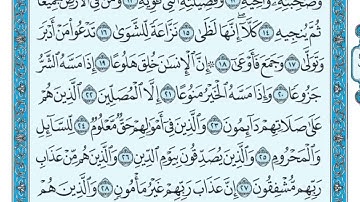 وَصَٰحِبَتِهِۦ وَأَخِيهِ ١٢ وَفَصِيلَتِهِ ٱلَّتِي تُـٔۡوِيهِ ١٣ وَمَن فِي ٱلۡأَرۡضِ جَمِيعٗا
ثُمَّ يُنجِيهِ ١٤ كَلَّآۖ إِنَّهَا لَظَىٰ ١٥ نَزَّاعَةٗ لِّلشَّوَىٰ ١٦ تَدۡعُواْ مَنۡ أَدۡبَرَ
وَتَوَلَّىٰ ١٧ وَجَمَعَ فَأَوۡعَىٰٓ ١٨ ۞ إِنَّ ٱلۡإِنسَٰنَ خُلِقَ هَلُوعًا ١٩ إِذَا مَسَّهُ ٱلشَّرُّ
جَزُوعٗا ٢٠ وَإِذَا مَسَّهُ ٱلۡخَيۡرُ مَنُوعًا ٢١ إِلَّا ٱلۡمُصَلِّينَ ٢٢ ٱلَّذِينَ هُمۡ
عَلَىٰ صَلَاتِهِمۡ دَآئِمُونَ ٢٣ وَٱلَّذِينَ فِيٓ أَمۡوَٰلِهِمۡ حَقّٞ مَّعۡلُومٞ ٢٤ لِّلسَّآئِلِ
وَٱلۡمَحۡرُومِ ٢٥ وَٱلَّذِينَ يُصَدِّقُونَ بِيَوۡمِ ٱلدِّينِ ٢٦ وَٱلَّذِينَ هُم مِّنۡ عَذَابِ
رَبِّهِم مُّشۡفِقُونَ ٢٧ إِنَّ عَذَابَ رَبِّهِمۡ غَيۡرُ مَأۡمُونٖ ٢٨ وَٱلَّذِينَ هُمۡ